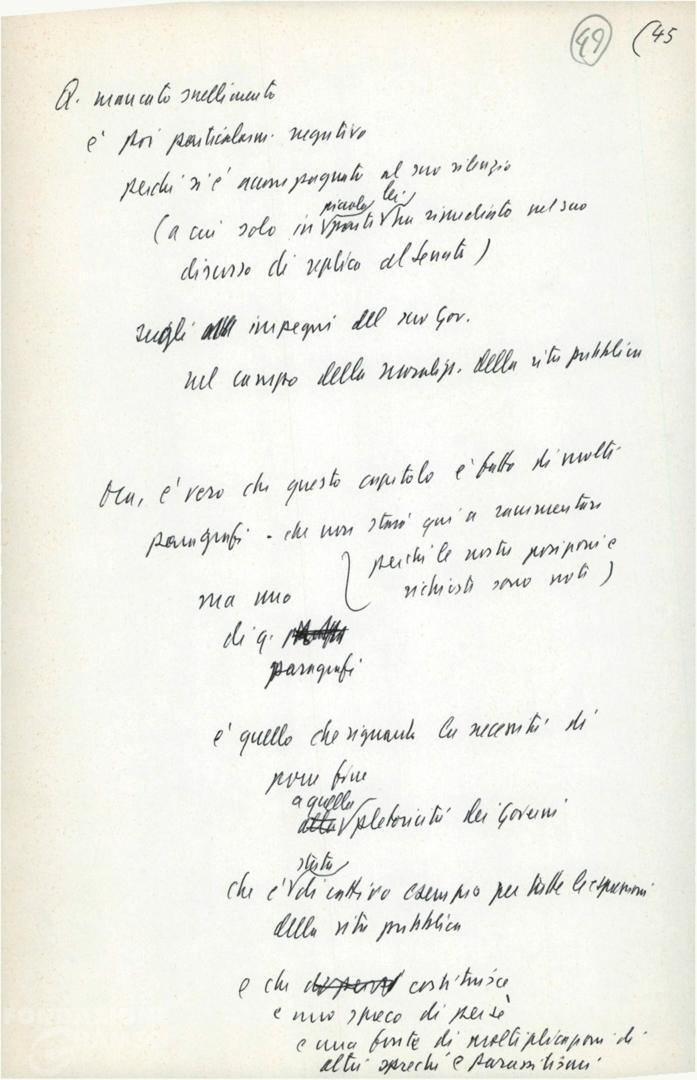 49 (45
Q. mancato snellimento
è poi particolarm. negativo
perché si è accompagnato al suo silenzio
piccola lei
(a cui solo in parte ha rimediato nel suo
discorso di replica al Senato)
sugli impegni del suo Gov.
nel campo della moralizz. della vita pubblica
Ora, è vero che questo capitolo è fatto di molti
paragrafi - che non starò qui a rammentare
perché le nostre posizioni e
richieste sono note)
ma uno
di q.
paragrafi
è quello che riguarda la necessità di
porre fine
a quella
alla pletoricità dei Governi
stata
che è di cattivo esempio per tutte le espressioni
della vita pubblica
e che costituisce
e uno spreco di per sè
e una fonte di moltiplicazioni di
altri sprechi e parassitismi